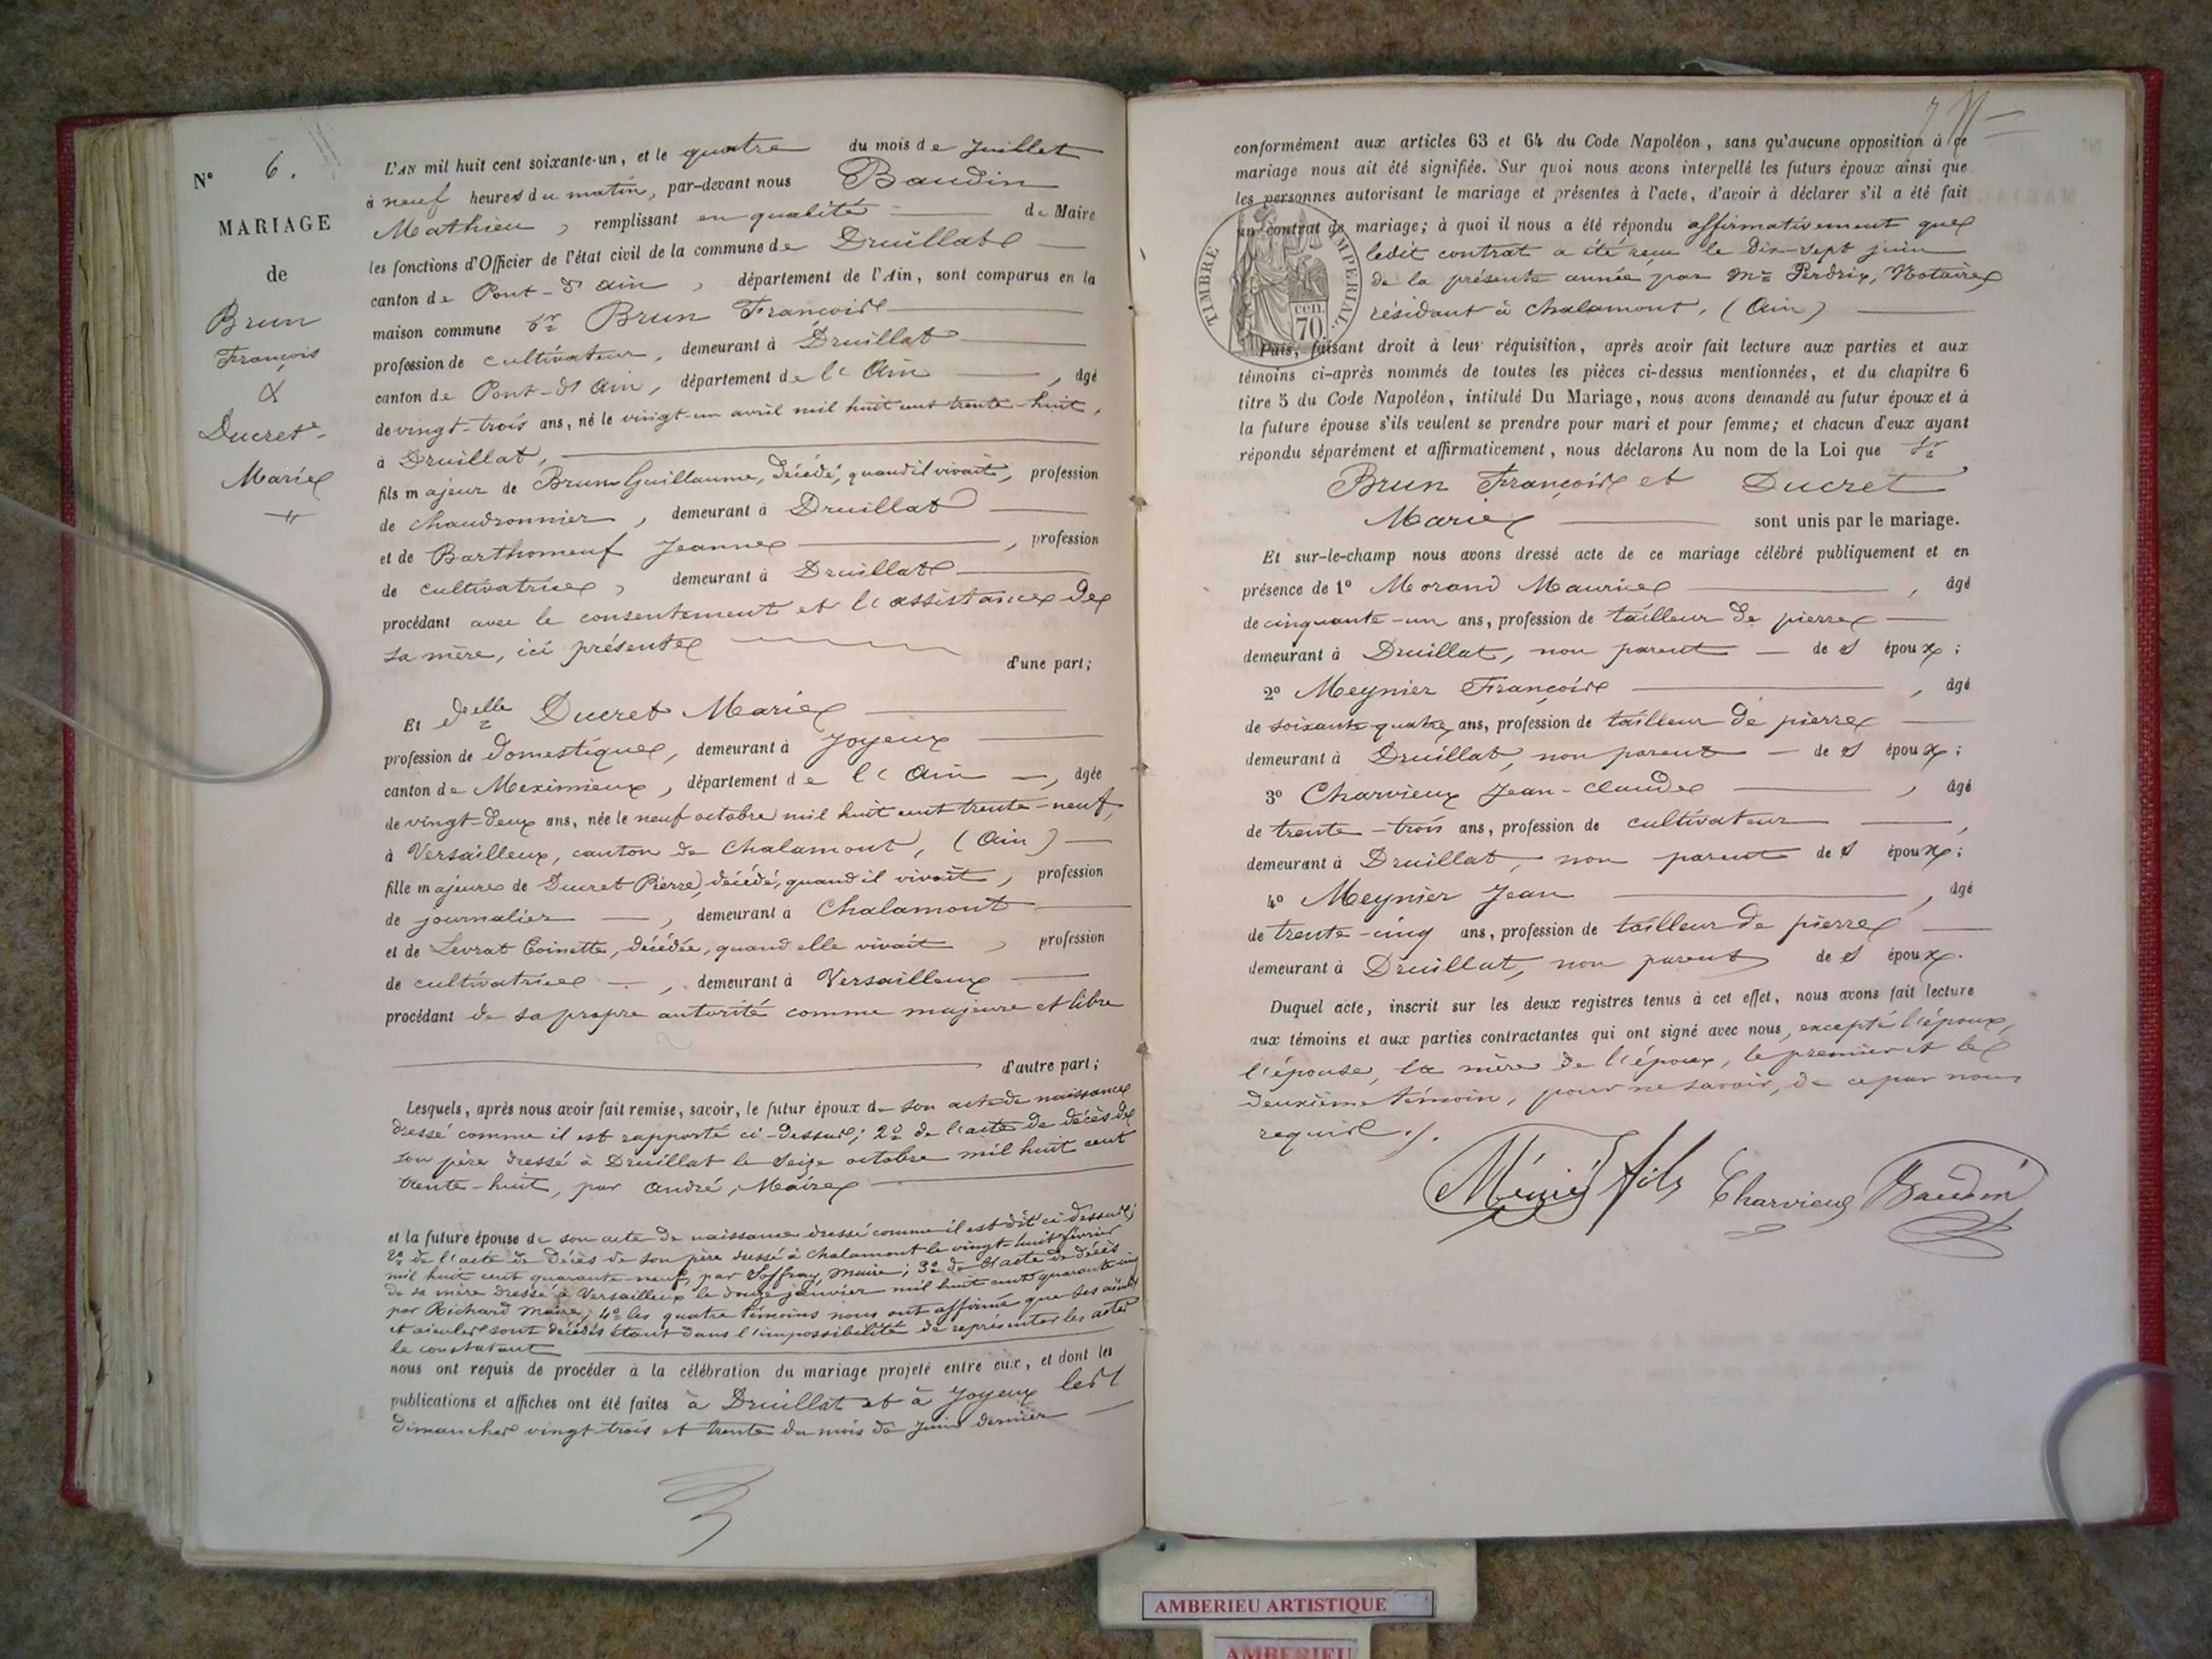 N° 6.
MARIAGE
de
Brun
François
&
Ducret
Marie
L'AN mil huit cent soixante-un, et le quatre du mois de Juillet
à neuf heures du matin, par-devant nous Baudin
Mathieu, remplissant en qualité de Maire
les fonctions d'Officier de l'état civil de la commune de Druillat
canton de Pont-d'Ain, département de l'Ain, sont comparus en la
maison commune Sr Brun François
profession de cultivateur, demeurant à Druillat
canton de Pont-d'Ain, département de l'Ain, âgé
de vingt-trois ans, né le vingt-un avril mil huit cent trente-huit,
à Druillat,
fils majeur de Brun Guillaume, décédé, quand il vivait, profession
de chaudronnier, demeurant à Druillat
et de Barthomeuf Jeanne, profession
de cultivatrice, demeurant à Druillat
procédant avec le consentement et l'assistance de
sa mère, ici présente
d'une part;
Et delle Ducret Marie
profession de domestique, demeurant à Joyeux
canton de Meximieux, département de l'Ain, âgée
de vingt-deux ans, née le neuf octobre mil huit cent trente-neuf,
à Versailleux, canton de Chalamont, (Ain)
fille majeure de Ducret Pierre, décédé, quand il vivait, profession
de journalier, demeurant à Chalamont
et de Levrat Toinette, décédée, quand elle vivait, profession
de cultivatrice, demeurant à Versailleux
procédant de sa propre autorité comme majeure et libre
d'autre part;
Lesquels, après nous avoir fait remise, savoir, le futur époux de son acte de naissance
dressé comme il est rapporté ci-dessus; 2° de l'acte de décès de
son père dressé à Druillat le seize octobre mil huit cent
trente-huit, par André, Maire
et la future épouse de son acte de naissance dressé comme il est dit ci-dessus;
2° de l'acte de décès de son père dressé à Chalamont le vingt-huit février
mil huit cent quarante-neuf, par Soffray, Maire; 3° de l'acte de décès
de sa mère dressé à Versailleux le douze janvier mil huit cent quarante cinq
par Richard Maire; 4° les quatre témoins nous ont affirmé que ses aieuls
et aieules sont décédés étant dans l'impossibilité de représenter les actes
le constatant
nous ont requis de procéder à la célébration du mariage projeté entre eux, et dont les
publications et affiches ont été faites à Druillat et à Joyeux les
dimanches vingt-trois et trente du mois de juin dernier
conformément aux articles 63 et 64 du Code Napoléon, sans qu'aucune opposition à ce
mariage nous ait été signifiée. Sur quoi nous avons interpellé les futurs époux ainsi que
les personnes autorisant le mariage et présentes à l'acte, d'avoir à déclarer s'il a été fait
un contrat de mariage; à quoi il nous a été répondu affirmativement que
ledit contrat a été reçu le dix-sept juin
de la présente année par Me Perdrix, Notaire
résidant à Chalamont, (Ain)
TIMBRE IMPERIAL
70 cen.
Puis, faisant droit à leur réquisition, après avoir fait lecture aux parties et aux
témoins ci-après nommés de toutes les pièces ci-dessus mentionnées, et du chapitre 6
titre 5 du Code Napoléon, intitulé Du Mariage, nous avons demandé au futur époux et à
la future épouse s'ils veulent se prendre pour mari et pour femme; et chacun d'eux ayant
répondu séparément et affirmativement, nous déclarons Au nom de la Loi que Sr
Brun François et Ducret
Marie sont unis par le mariage.
Et sur-le-champ nous avons dressé acte de ce mariage célébré publiquement et en
présence de 1° Morand Maurice, âgé
de cinquante-un ans, profession de tailleur de pierre
demeurant à Druillat, non parent des époux;
2° Meynier François, âgé
de soixante-quatre ans, profession de tailleur de pierre
demeurant à Druillat, non parent des époux;
3° Charvieux Jean-Claude, âgé
de trente-trois ans, profession de cultivateur,
demeurant à Druillat, non parent des époux;
4° Meynier Jean, âgé
de trente-cinq ans, profession de tailleur de pierre
demeurant à Druillat, non parent des époux.
Duquel acte, inscrit sur les deux registres tenus à cet effet, nous avons fait lecture
aux témoins et aux parties contractantes qui ont signé avec nous, excepté l'époux,
l'épouse, la mère de l'époux, le premier et le
deuxième témoin, pour ne savoir, de ce par nous
requis./.
Ménié fils Charvieux Baudin
AMBERIEU ARTISTIQUE
AMBERIEU